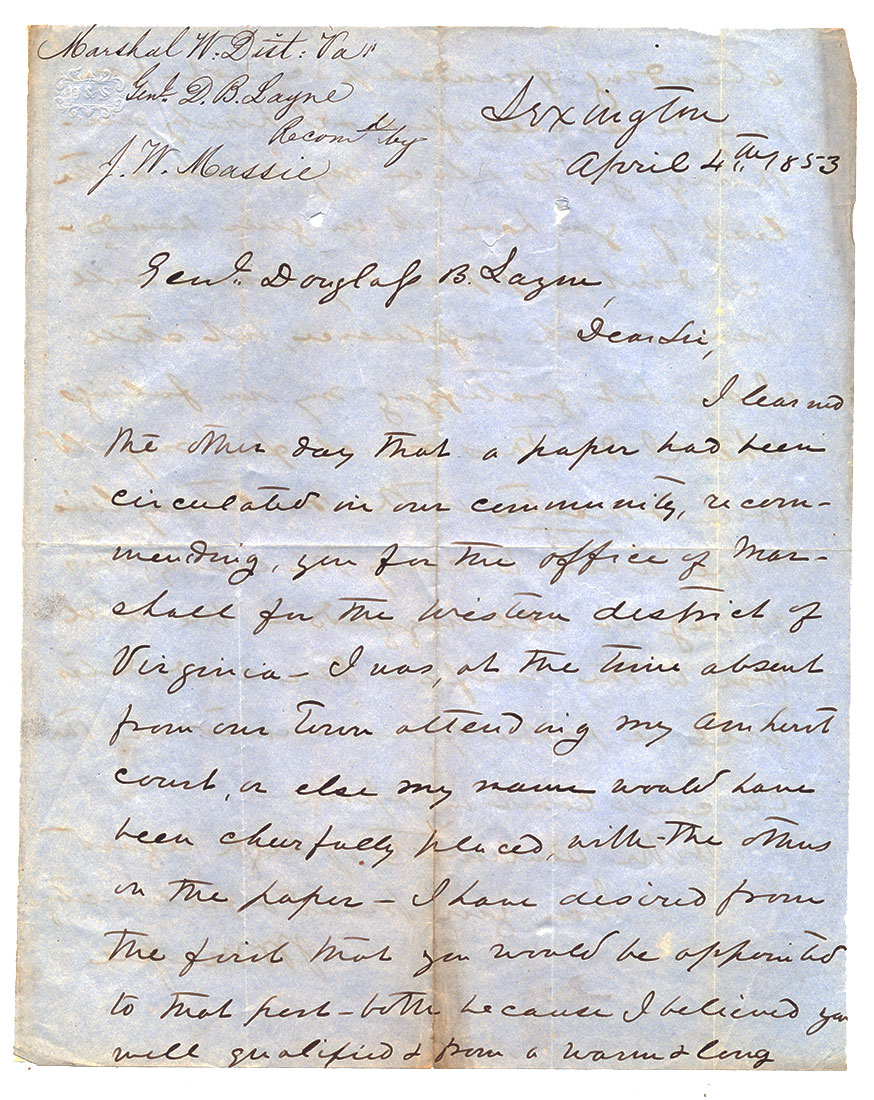 Marshal W. Dist: Va
Genl. D. B. Layne
Recomd by
J. W. Massie
Lexington
April 4th, 1853
Genl. Douglass B. Layne,
Dear Sir,
I learned
the other day that a paper had been
circulated in our community, recom-
mending, you for the office of Mar-
shall for the western district of
Virginia - I was, at the time absent
from our Town attending my Amherst
court, or else my name would have
been cheerfully placed, with the others
on the paper - I have desired from
the first that you would be appointed
to that post - both because I believed you
well qualified & from a warm & long